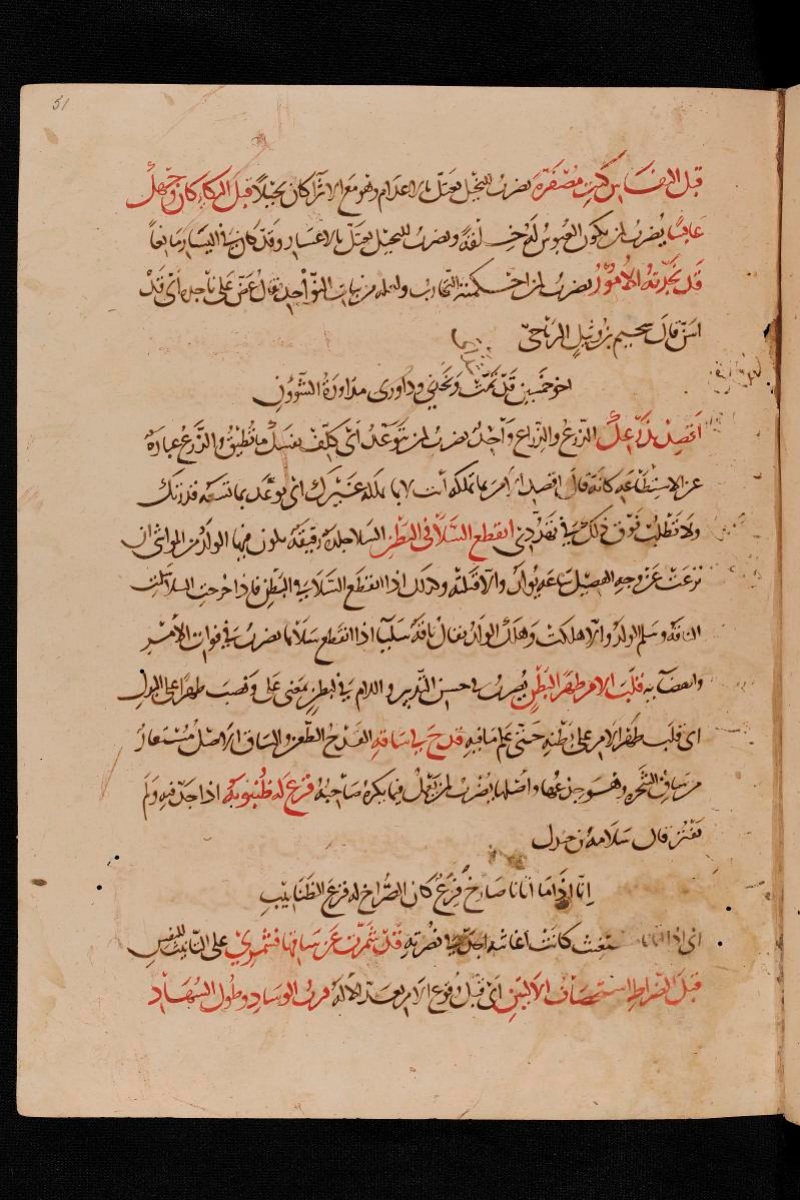 51
قبل النفاس كنت مصفرة يضرب للبخيل يعتل بالاعدام وهو مع الاثراء كان بخيلا قبل البكاء كان وجهك
عابسا يضرب لمن يكون العبوس له خلقة ويضرب للبخيل يعتل بالاعسار وقد كان في اليسار مانعا
قد نجذته الامور يضرب لمن احكمته التجارب ولعله من بنات النواجذ يقال عض على ناجذه اى قد
اسن قال سحيم بن وثيل الرياحى
اخو خمسين قد تمت ونجذنى مداورة الشؤون
اقصد بذرعك الذرع والذراع واحد يضرب لمن يتوعد اى كلف نفسك ما تطيق والذرع عبارة
عن الاستطاعة كانه قال اقصد الامر بما تملكه انت لا بما يملكه غيرك اى توعد بما تسعه قدرتك
ولا تطلب فوق ذلك في تهددى انقطع السلا في البطن السلا جلدة رقيقة يكون فيها الولد من المواشى ان
نزعت عن وجه الفصيل ساعة يولد والا قتلته وكذلك اذا انقطع السلا في البطن فاذا خرجت السلا سلمت
الناقة وسلم الولد والا هلكت وهلك الولد يقال ناقة سلياء اذا انقطع سلاها يضرب في فوات الامر
وانقضائه قلب الامر ظهرا لبطن يضرب في حسن التدبير واللام في لبطن بمعنى على ونصب ظهرا على البدل
اى قلب ظهر الامر على بطنه حتى علم ما فيه قدح في ساقه القدح الطعن والساق الاصل مستعار
من ساق الشجرة وهو جذعها واصلها يضرب لمن يعمل فيما يكره صاحبه قرع له ظنبوبه اذا جد فيه ولم
يفتر قال سلامة بن جندل
انا اذا ما اتانا صارخ فزع كان الصراخ له قرع الظنابيب
اى اذا اتانا مستغيث كانت اغاثته الجد في نصرته قد شمرت عن ساقها فشمرى على التانيث للنفس
قبل الضراط استحصاف الاليتين اى قبل وقوع الامر تعد الآلة قرب الوساد وطول السهاد